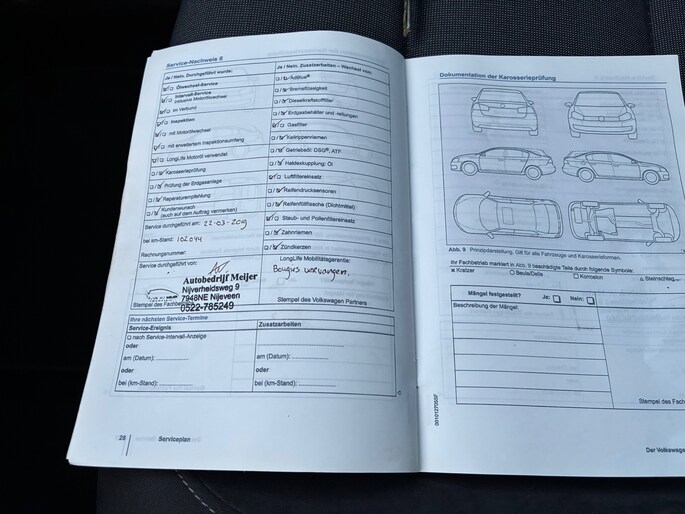 Service-Nachweis 6
Ja / Nein. Durchgeführt wurde:
Ölwechsel-Service
Intervall-Service
inklusive Motorölwechsel
im Verbund
Inspektion
mit Motorölwechsel
mit erweitertem Inspektionsumfang
LongLife Motoröl verwendet
Karosserieprüfung
Prüfung der Erdgasanlage
Reparaturempfehlung
Kundenwunsch
(auch auf dem Auftrag vermerken)
Service durchgeführt am: 22-03-2019
bei km-Stand: 102044
Rechnungsnummer:
Service durchgeführt von:
Autobedrijf Meijer
Nijverheidsweg 9
7948NE Nijeveen
0522-785249
Stempel des Fachbetriebs
Ja / Nein. Zusatzarbeiten – Wechsel von:
AdBlue®
Bremsflüssigkeit
Dieselkraftstofffilter
Erdgasbehälter und -leitungen
Gasfilter
Keilrippenriemen
Getriebeöl: DSG®, ATF
Haldexkupplung: Öl
Luftfiltereinsatz
Reifendrucksensoren
Reifenfüllflasche (Dichtmittel)
Staub- und Pollenfiltereinsatz
Zahnriemen
Zündkerzen
LongLife Mobilitätsgarantie:
Bougies vervangen.
Stempel des Volkswagen Partners
Ihre nächsten Service-Termine
Service-Ereignis
Zusatzarbeiten
nach Service-Intervall-Anzeige
oder
am (Datum):
oder
bei (km-Stand):
oder
am (Datum):
oder
bei (km-Stand):
28 Serviceplan
Dokumentation der Karosserieprüfung
Abb. 9 Prinzipdarstellung. Gilt für alle Fahrzeuge und Karosserieformen.
Ihr Fachbetrieb markiert in Abb. 9 beschädigte Teile durch folgende Symbole:
x Kratzer o Beule/Delle □ Korrosion △ Steinschlag
Mängel festgestellt? Ja: Nein:
Beschreibung der Mängel:
Stempel des Fach
Der Volkswage